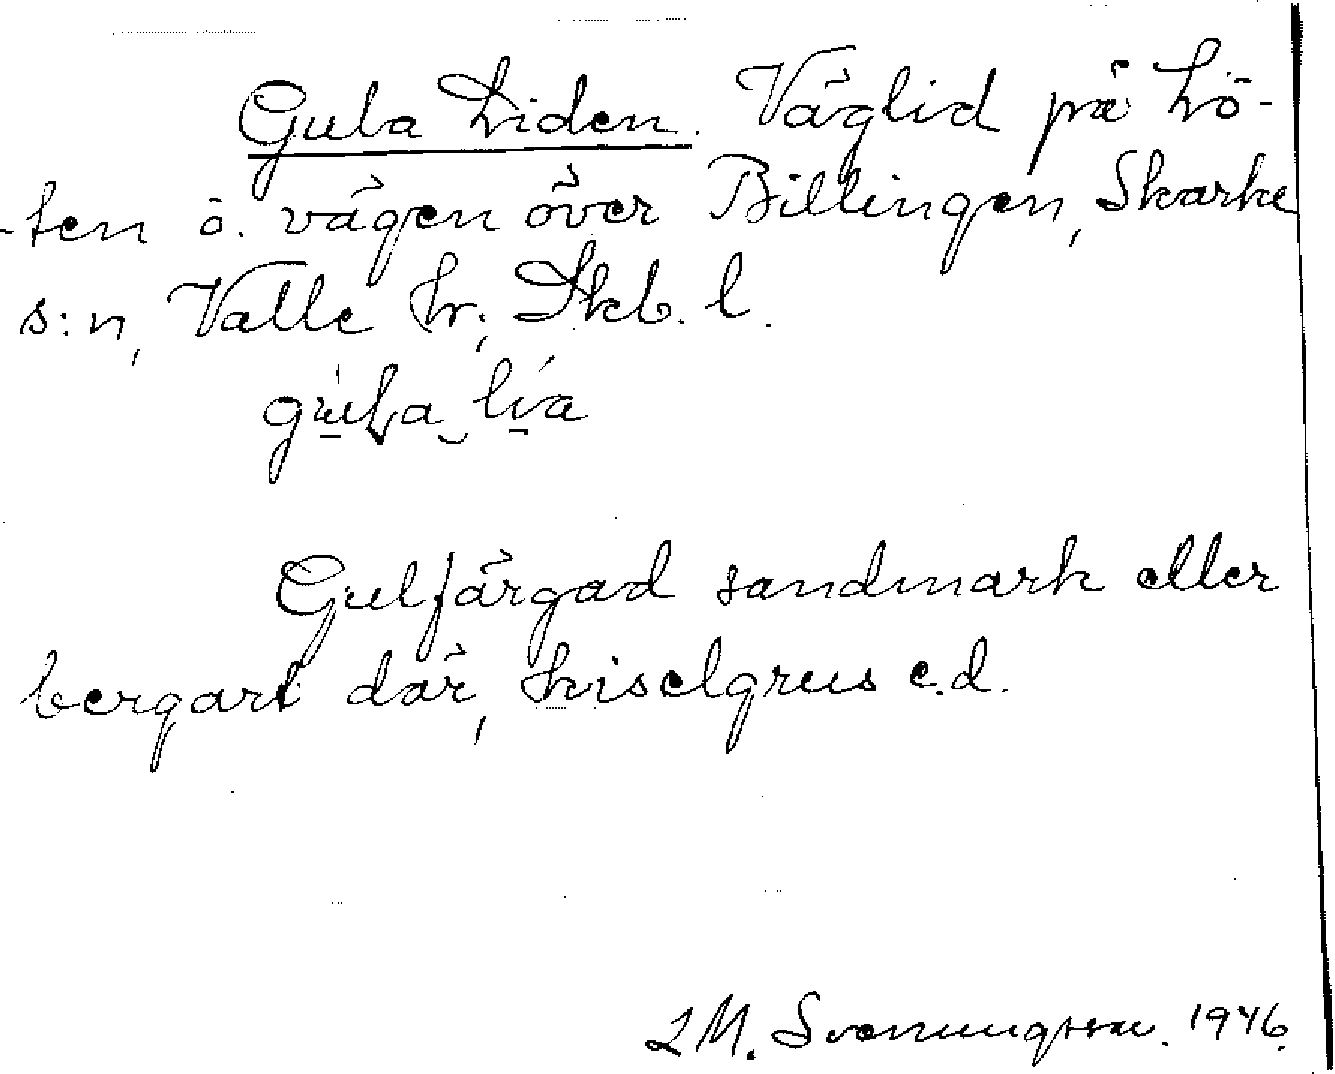 Gula Liden. Väglid på Lö-
-ten ö. vägen över Billingen, Skarke
s:n, Valle hr; Skb. l.
gula lia
Gulfärgad sandmark eller
bergart där, kiselgrus e.d.
L M. Svenungsson. 1946.